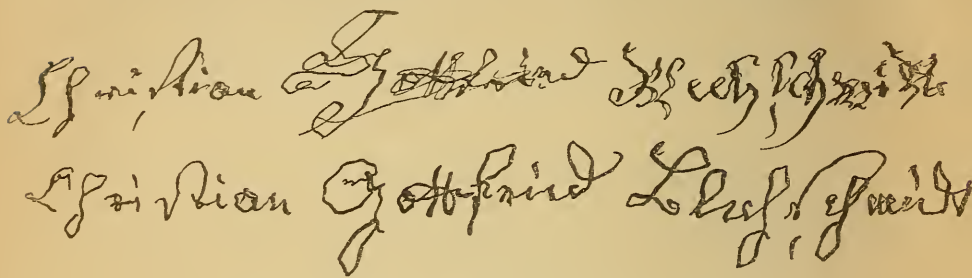 Christian Gottfried
Christian Gottfried Blechschmidt